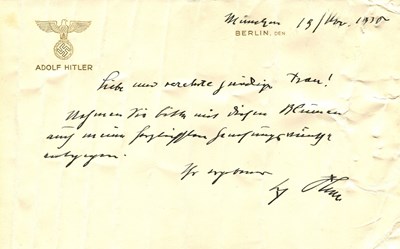 München 19/Nov. 1935
BERLIN, DEN
ADOLF HITLER
Liebe und verehrte gnädige Frau!
Nehmen Sie bitte mit diesen Blumen
auch meine herzlichsten Genesungswünsche
entgegen.
Ihr ergebener